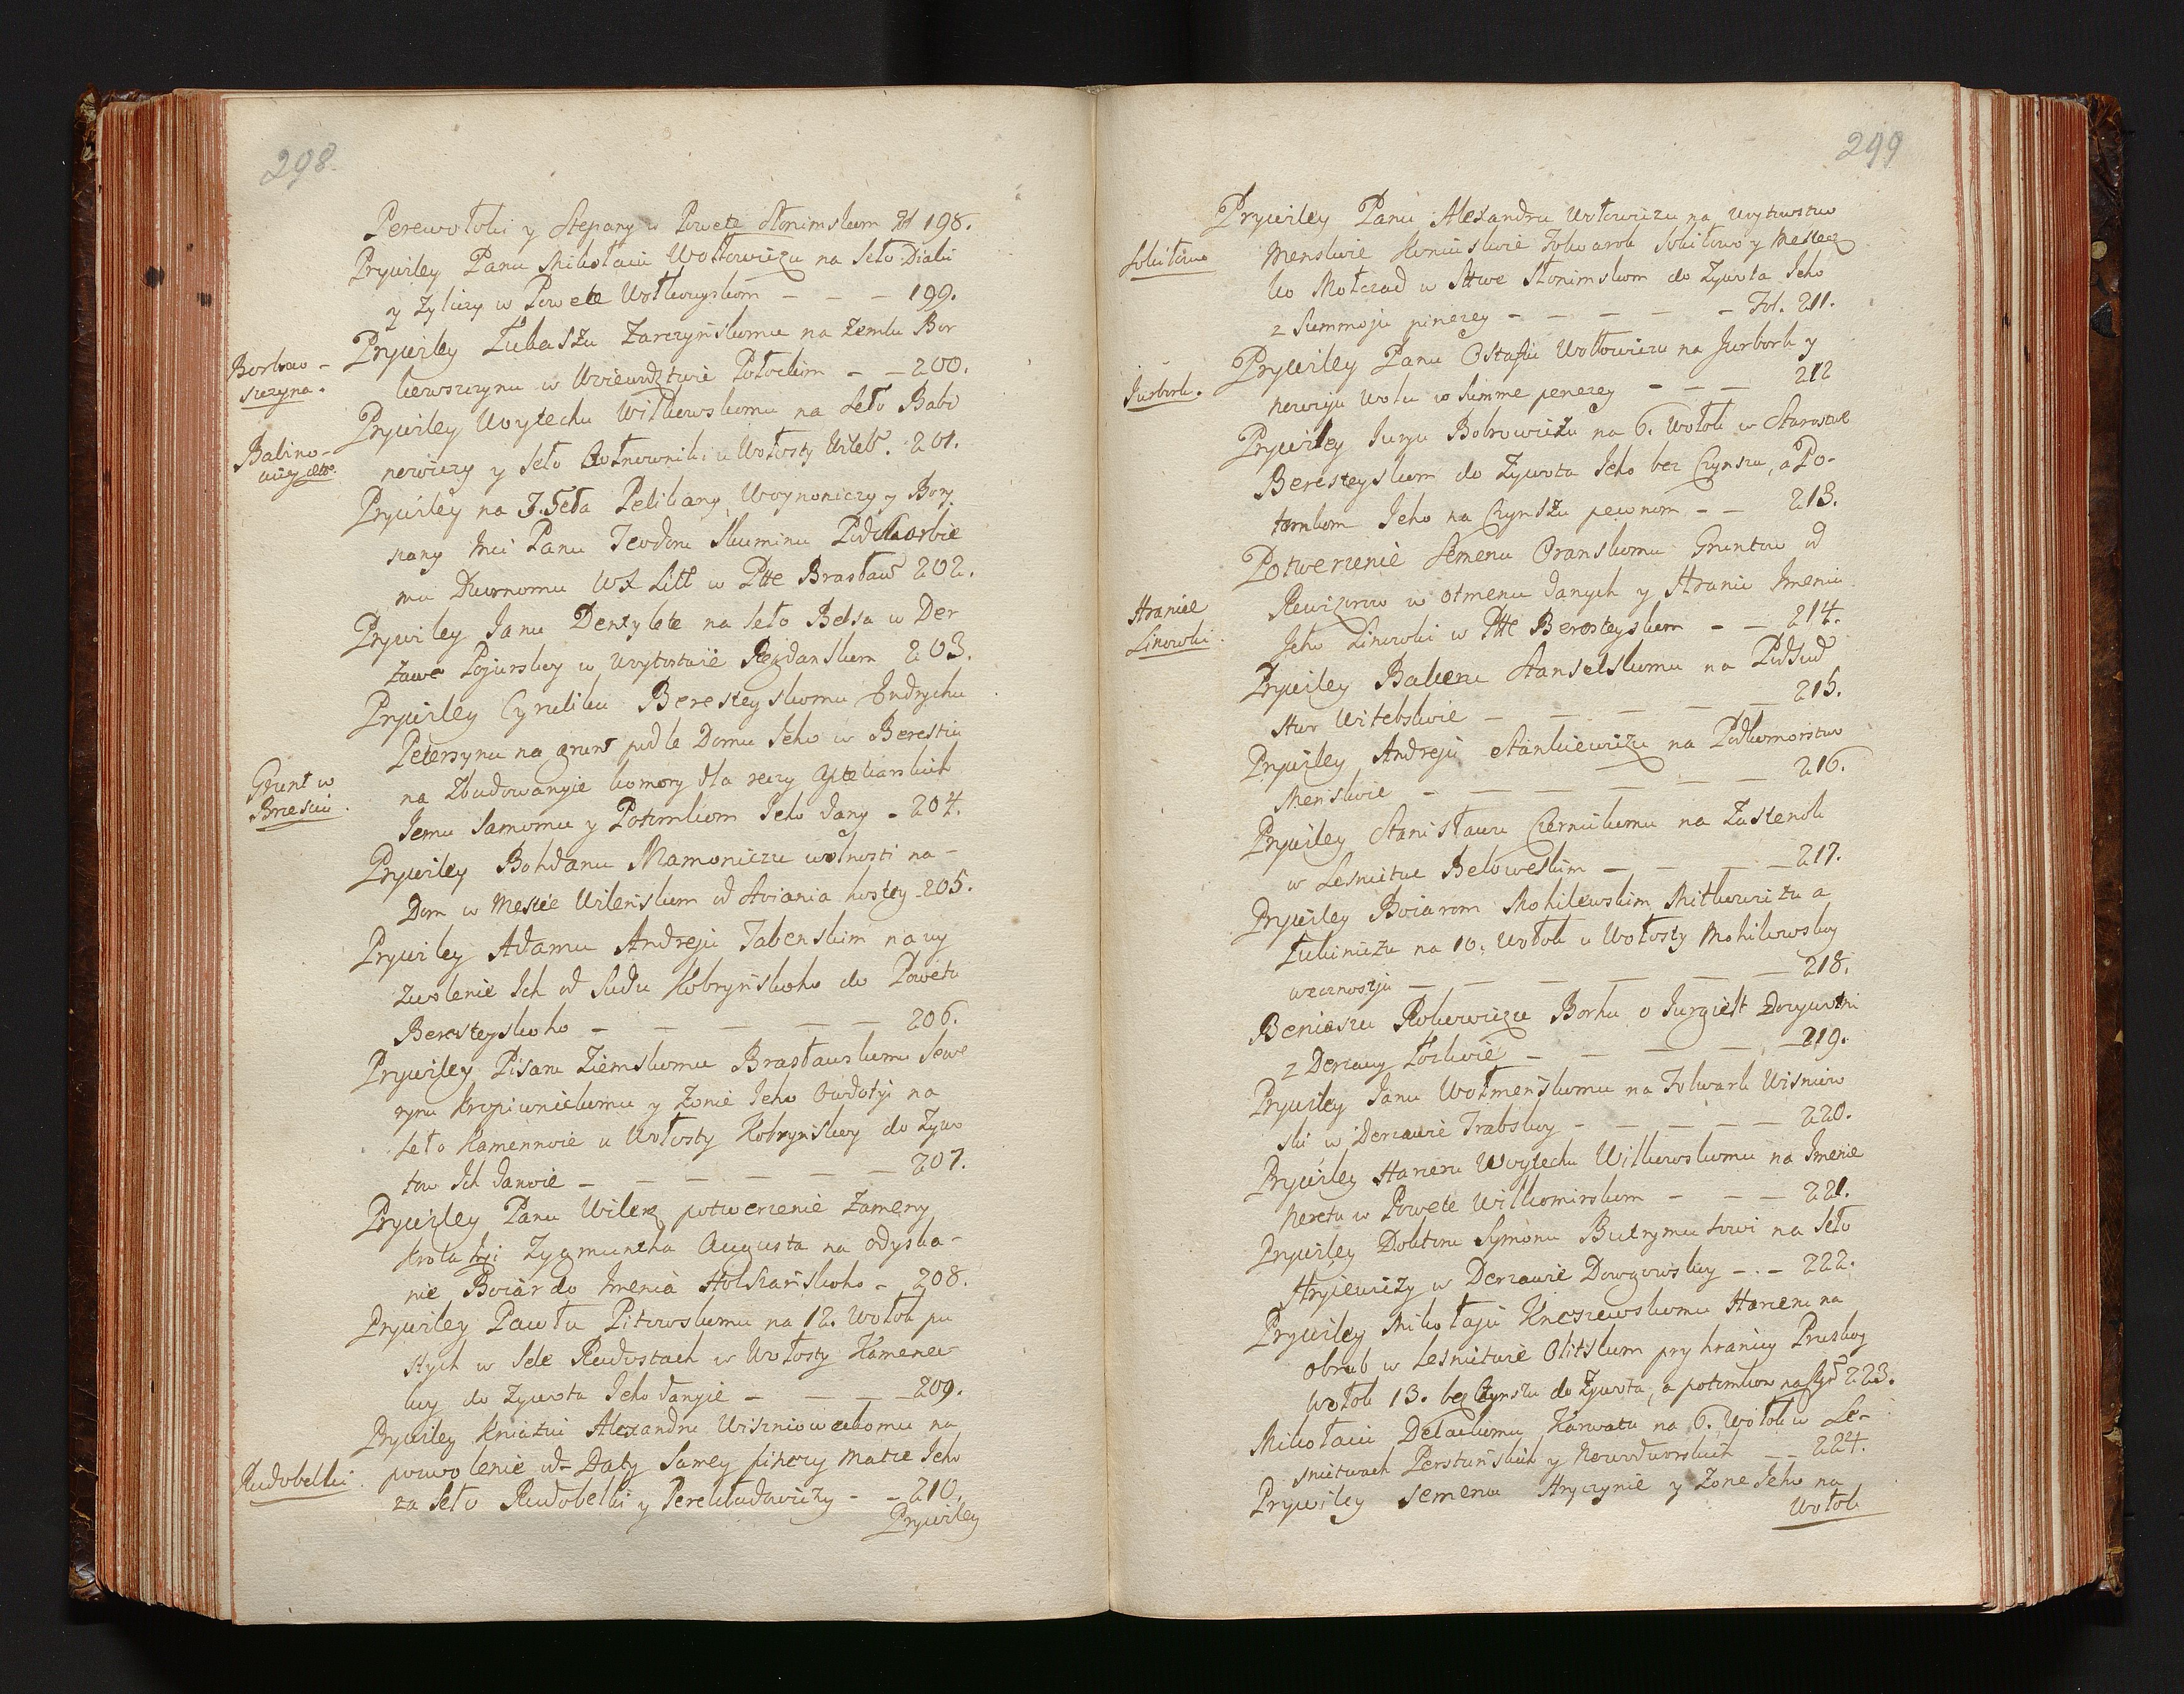 298.
Perewołoki y Stepany w Powete Słonimskom 198.
Prywiley Panu Mikołaiu Wołłowiczu na Seło Diaki
y Żyliczy w Powete Wołkowyskom - - - 199.
Borkow-
szczyna.
Prywiley Łukaszu Zarczyńskomu na Zemlu Bor
kowszczynu w Woiewodztwie Połockim - - 200.
Babino-
wiczy etc.
Prywiley Woytechu Wilkowskomu na Seło Babi
nowiczy y Seło Wołosty Witeb. 201.
Prywiley na 3. Seła Pelikany, Woynoniczy y Bory
szany Imci Panu Teodoru Skuminu Podskarbie
mu Dwornomu WX Litt w Ptte Brasław 202.
Prywiley Janu Denzylote na Seło Belsa w Der
żawe Pojurskoy w Woytostwie Regdanskom 203.
Prywiley Cyruliku Beresteyskomu Indrychu
Petersynu na grunt podle Domu Jeho w Berestiu
Grunt w
Brzesciu.
na Zbudowanyie komory dla reczy Aptekarskich
Jemu Samomu y Potomkom Jeho dany - 204.
Prywiley Bohdanu Mamoniczu wolnosti na-
Dom w Mestie Wilenskom od stoiania hostey - 205.
Prywiley Adamu Andreju Jabenskim na wy
zwolenie Ich od Sudu Kobryńskoho do Powetu
Beresteyskoho - - - - - 206.
Prywiley Pisaru Ziemskomu Brasławskomu Sewe
rynu Kropiwnickomu y Żonie Jeho Owdotyi na
Seło Kamennoie u Wołosty Kobryńskoy do Żywo
tow Ich danoie - - - - - 207.
Prywiley Panu Wilenz potwerzenie Zameny
Krola Jmci Zygmuntha Augusta na odyska-
nie Boiar do Imenia Holszańskoho - 208.
Prywiley Pawłu Pitowskomu na 12. Wołok pu
stych w Sele Radostach w Wołosty Kamenec
koy do Żywota Jeho danyie - - - 209.
Prywiley Kniaziu Alexandru Wiszniowieckomu na
pozwolenie od Daty Samey Pinczy Matce Jeho
Rudobelki.
za Seło Rudobelki y Perekładowiczy - - 210.
Prywiley
299
Prywiley Panu Alexandru Wołowiczu na Woytowstwo
Sokiłowo
Menskoie Koniuskoie Folwarok Sokiłowo y Mestecz
ko Mołczad w Sttwe Słonimskom do Żywota Jeho
z Summoju pinezey - - - - - Fol. 211.
Prywiley Panu Ostafiu Wołłowiczu na Jurbork y
Jurbork.
Nowuju Wolu w Summe penezey - - - 212
Prywiley Juryu Bobrowiczu na 6. Wołok w Starostwe
Beresteyskom do Żywota Jeho bez Czynszu, a Po-
tomkom Jeho na Czynszu pewnom - - 213.
Potwerzenie Semenu Oranskomu Gruntow od
Hranice
Linowki.
Rewizorow w otmenu danych y Hraniu Imenia
Jeho Linowki w Ptte Beresteyskom - - 214.
Prywiley Bakeru Stanselskomu na Podsud
stwo Witebskoie - - - - - 215.
Prywiley Andreju Stankiewiczu na Podkomorstwo
Menskoie - - - - - - 216.
Prywiley Stanisławu Czernickomu na Zastenok
w Lesnictwe Bełoweskim - - - - 217.
Prywiley Boiarom Mohilewskim Mitkowiczu a
Łukiniczu na 10. Wołok u Wołosty Mohilewskoy
wecznostju - - - - - - 218.
Beniaszu Rokowiczu Borku o Jurgielt Dozywotni
z Derzawy Łozkoie - - - - - 219.
Prywiley Janu Wołmenskomu na Folwark Wisniow
ski w Derzawie Trabskoy - - - - - 220.
Prywiley Harceru Woytechu Wilkowskomu na Imenie
Neretu w Powete Wilkomirskom - - - 221.
Prywiley Doktoru Symonu Butrymutowi na Seło
Hryiewiczy w Derzawie Dowgowskoy - - - 222.
Prywiley Mikołaju Kneszewskomu Harceru na
obrub w Lesnictwie Olitskom pry hranicy Pruskoy
Wołok 13. bez Czynszu do Żywota, a potomkow na 223.
Mikołaiu Delackomu Karwatu na 6. Wołok w Le-
snictwach Perstunskich y Nowodworskich - - 224.
Prywiley Semenu Hryczynie y Żone Jeho na
Wołok